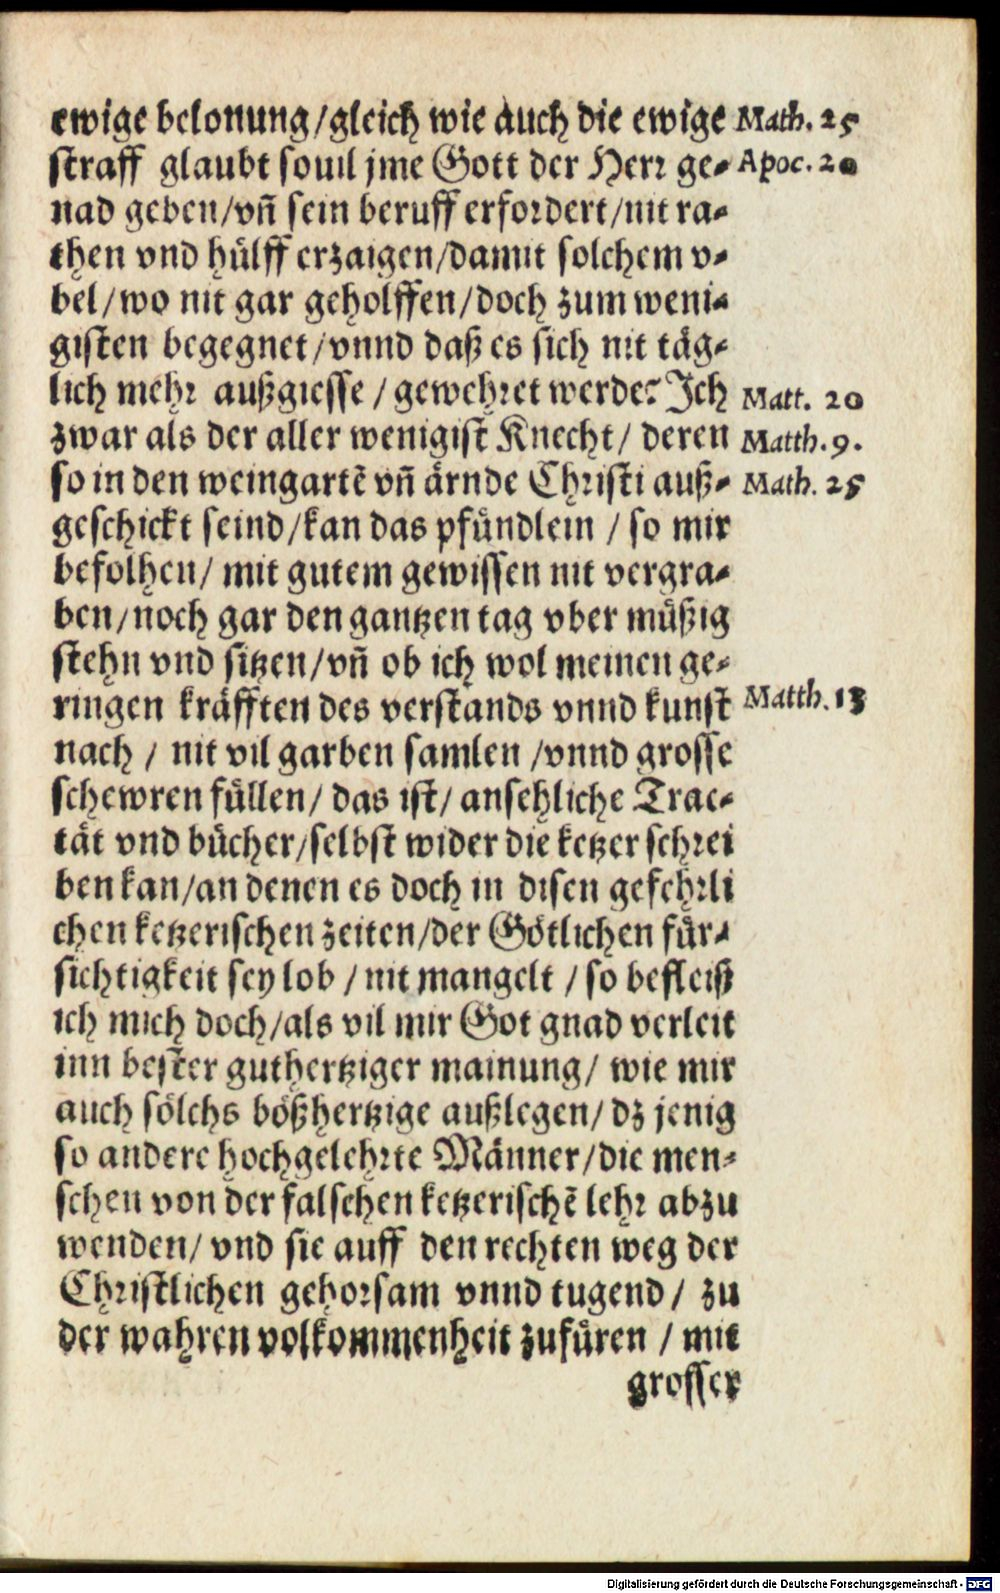 ewige belonung/gleich wie auch die ewige Math. 25
straff glaubt souil jme Gott der Herr ge- Apoc. 20
nad geben/vñ sein beruff erfordert/nit ra-
then vnd hülff erzaigen/damit solchem v-
bel/wo nit gar geholffen/doch zum weni-
gisten begegnet/vnnd daß es sich nit täg-
lich mehr außgiesse / gewehret werde? Ich Matt. 20
zwar als der aller wenigist Knecht/ deren Matth. 9.
so in den weingartẽ vñ ärnde Christi auß- Math. 25
geschickt seind/kan das pfündlein / so mir
befolhen/ mit gutem gewissen nit vergra-
ben/noch gar den gantzen tag vber müßig
stehn vnd sitzen/vñ ob ich wol meinen ge-
ringen kräfften des verstands vnnd kunst Matth. 13
nach / nit vil garben samlen /vnnd grosse
schewren füllen/ das ist/ ansehliche Trac-
tät vnd bücher/selbst wider die ketzer schrei
ben kan/an denen es doch in disen gefehrli
chen ketzerischen zeiten/der Götlichen für-
sichtigkeit sey lob / nit mangelt / so befleiß
ich mich doch/als vil mir Got gnad verleit
inn bester guthertziger mainung/ wie mir
auch sölchs bößhertzige außlegen/ dz jenig
so andere hochgelehrte Männer/die men-
schen von der falschen ketzerischẽ lehr abzu
wenden/ vnd sie auff den rechten weg der
Christlichen gehorsam vnnd tugend / zu
der wahren volkommenheit zufüren / mit
grosser
Digitalisierung gefördert durch die Deutsche Forschungsgemeinschaft - DFG